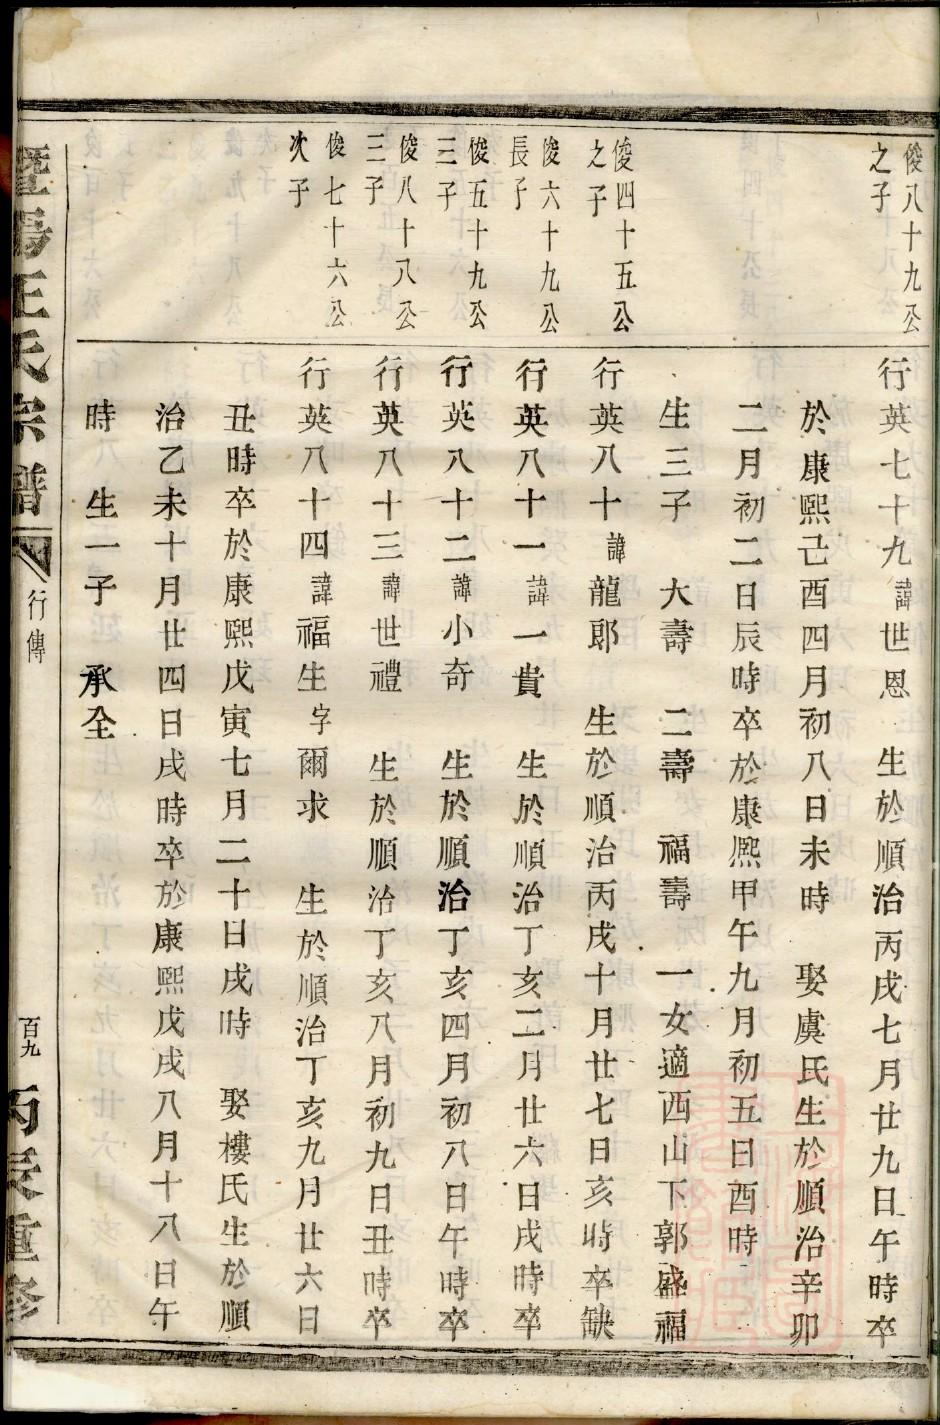 俊八十九公
之子
行英七十九諱世恩　生於順治丙戌七月廿九日午時卒
於康熙己酉四月初八日未時　娶虞氏生於順治辛卯
二月初二日辰時卒於康熙甲午九月初五日酉時
生三子　大壽　二壽　福壽　一女適西山下郭盛福
俊四十五公
之子
行英八十諱龍郎　生於順治丙戌十月廿七日亥時卒缺
俊六十九公
長子
行英八十一諱一貴　生於順治丁亥二月廿六日戌時卒
俊五十九公
三子
行英八十二諱小奇　生於順治丁亥四月初八日午時卒
俊八十八公
三子
行英八十三諱世禮　生於順治丁亥八月初九日丑時卒
俊七十六公
次子
行英八十四諱福生字爾求　生於順治丁亥九月廿六日
丑時卒於康熙戊寅七月二十日戌時　娶樓氏生於順
治乙未十月廿四日戌時卒於康熙戊戌八月十八日午
時　生一子　承全
暨陽王氏宗譜　行傳　百九　丙辰重修